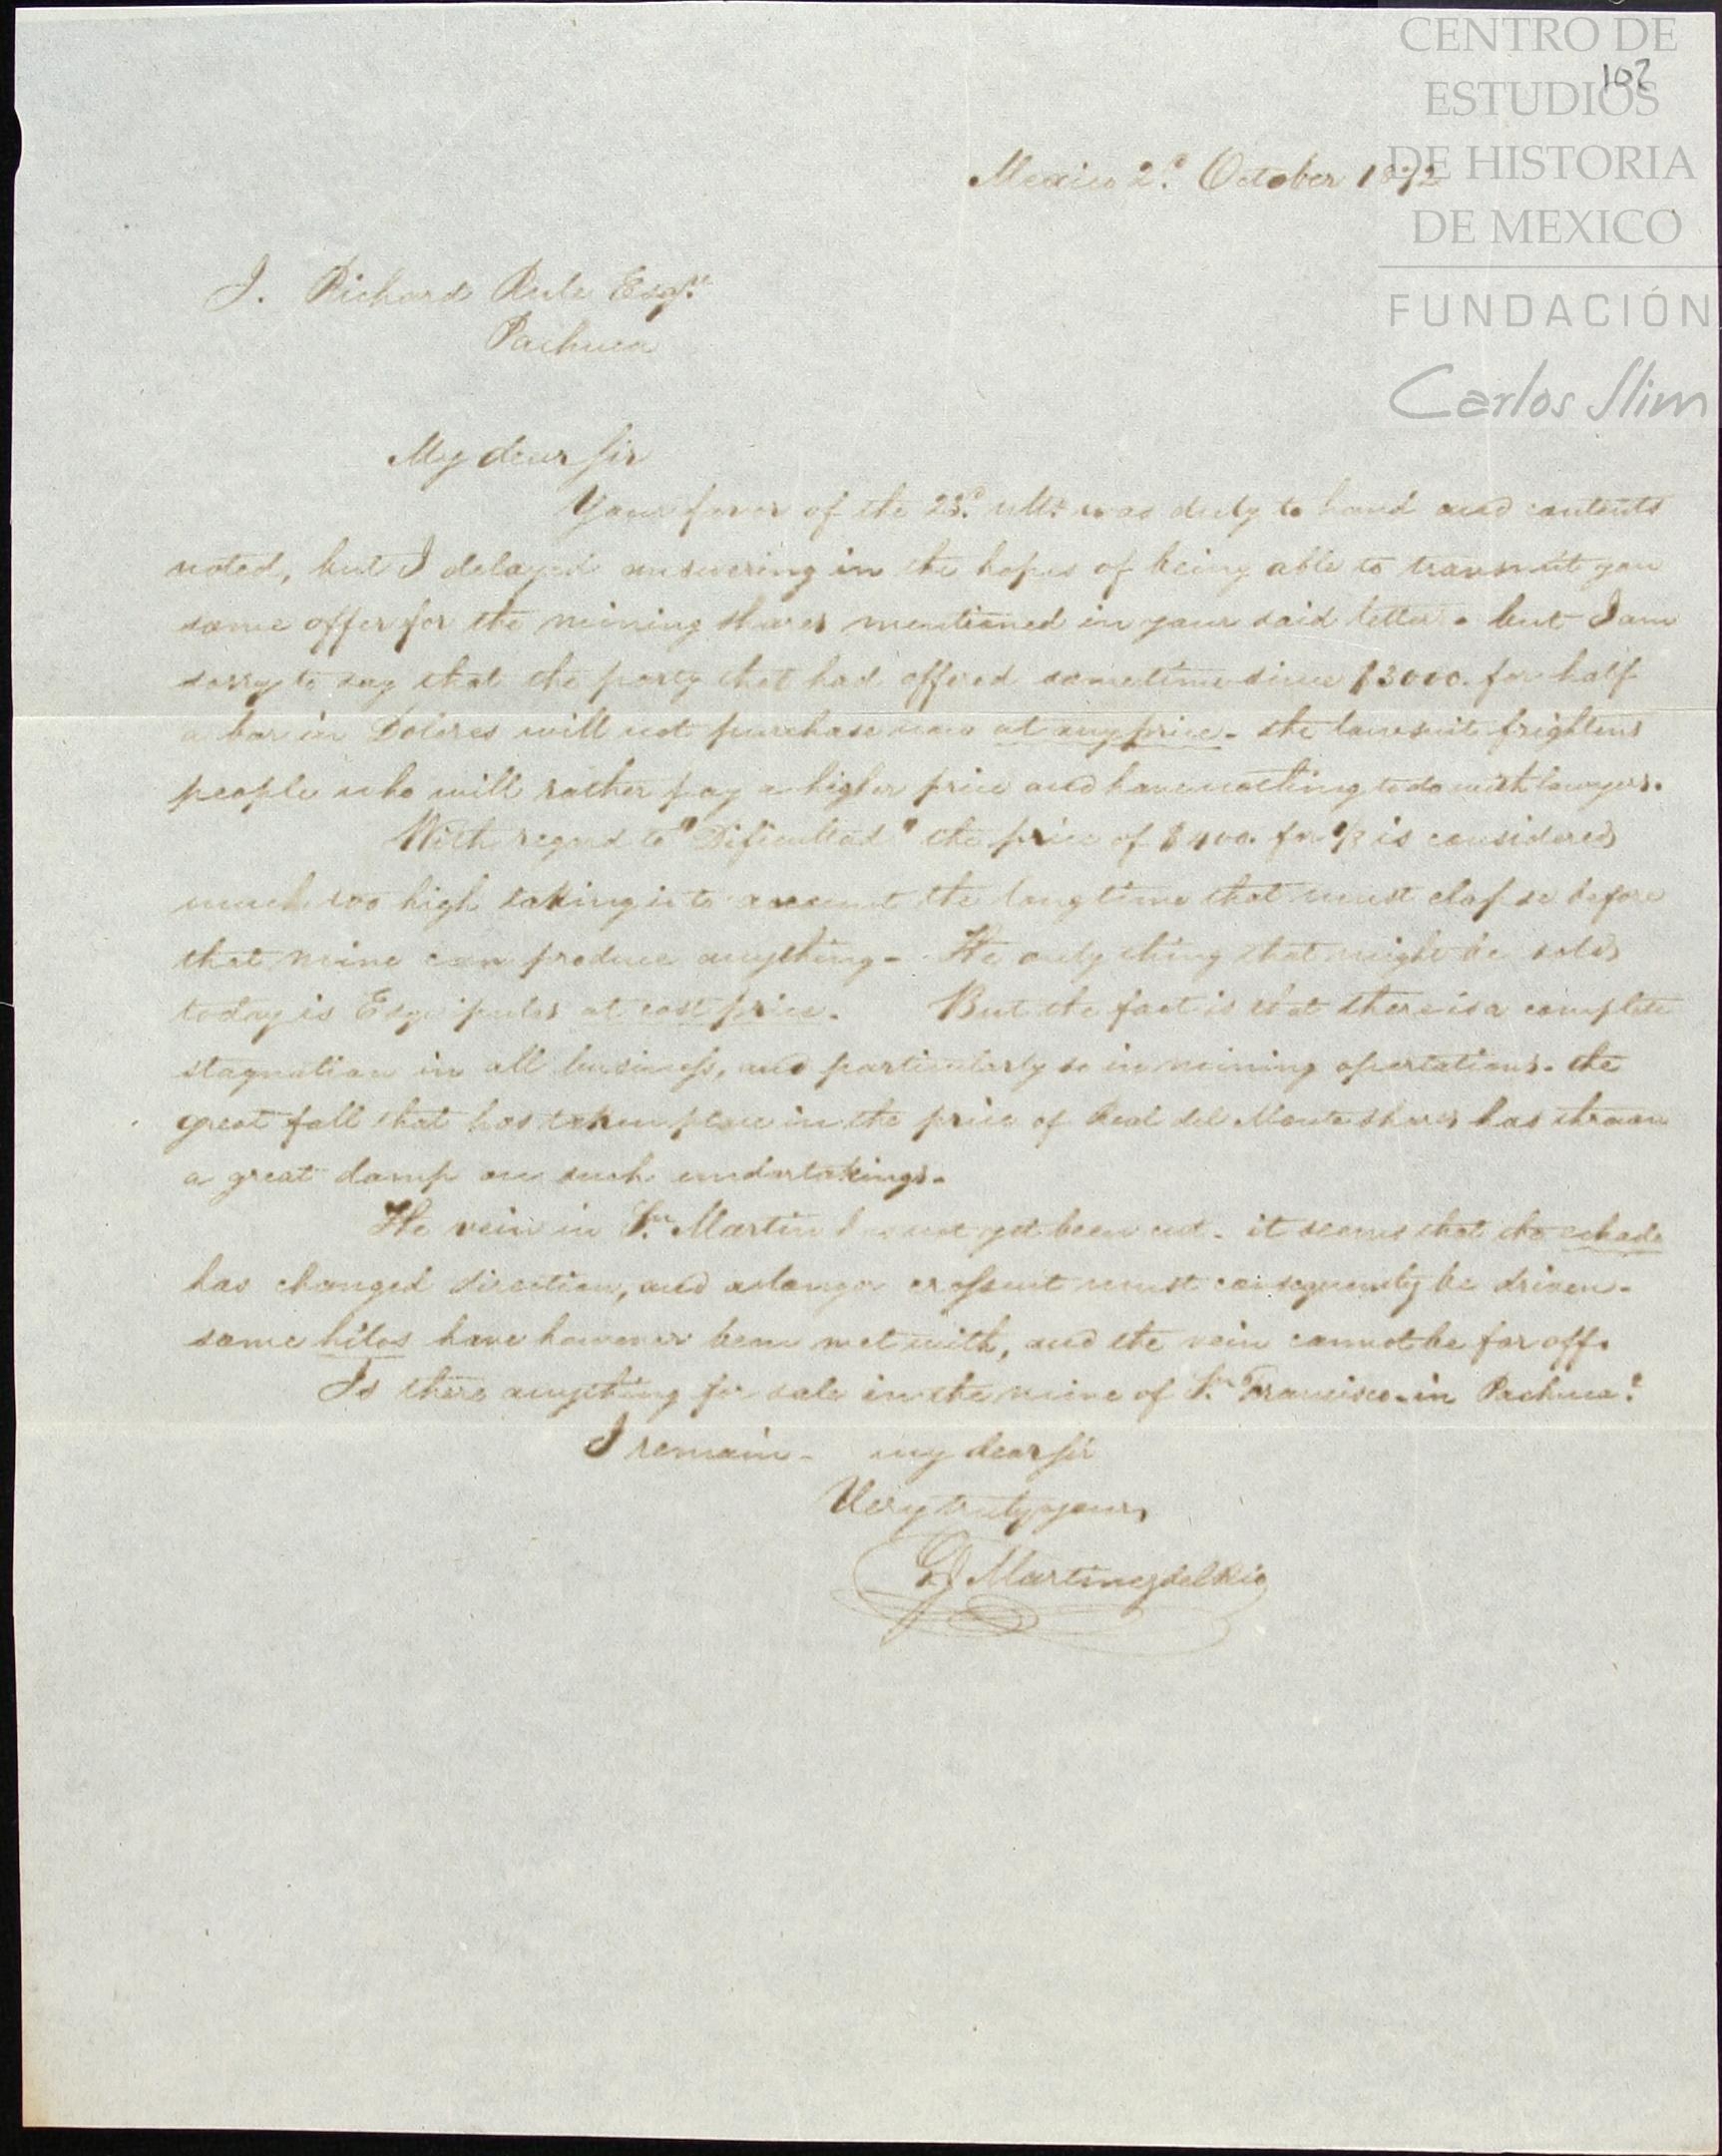 CENTRO DE
ESTUDIOS
DE HISTORIA
DE MEXICO
FUNDACIÓN
Carlos Slim
102
Mexico 2.d October 1872
J. Richard Rule Esqre
Pachuca
My dear Sir
Your favor of the 23.d ulto was duly to hand and contents
noted, but I delayed answering in the hopes of being able to transmit you
some offer for the mining shares mentioned in your said letter. but I am
sorry to say that the party that had offered sometime since $3000. for half
a bar in Dolores will not purchase now at any price. the lawsuit frightens
people who will rather pay a higher price and have nothing to do with lawyers.
With regard to "Dificultad" the price of for is considered
much too high taking into account the long time that must elapse before
that mine can produce anything - The only thing that might be sold
today is Esquipulas at cost price. But the fact is that there is a complete
stagnation in all business, and particularly so in mining opertations. the
great fall that has taken place in the price of Real del Monte shares has thrown
a great damp on such undertakings.
The vein in Sn. Martin has not yet been cut. it seems that the echado
has changed direction, and a longer crosscut must consequently be driven.
some hilos have however been met with, and the vein cannot be far off.
Is there anything for sale in the mine of Sn. Francisco in Pachuca?
I remain - my dear Sir
Very truly yours
Martinez del Rio